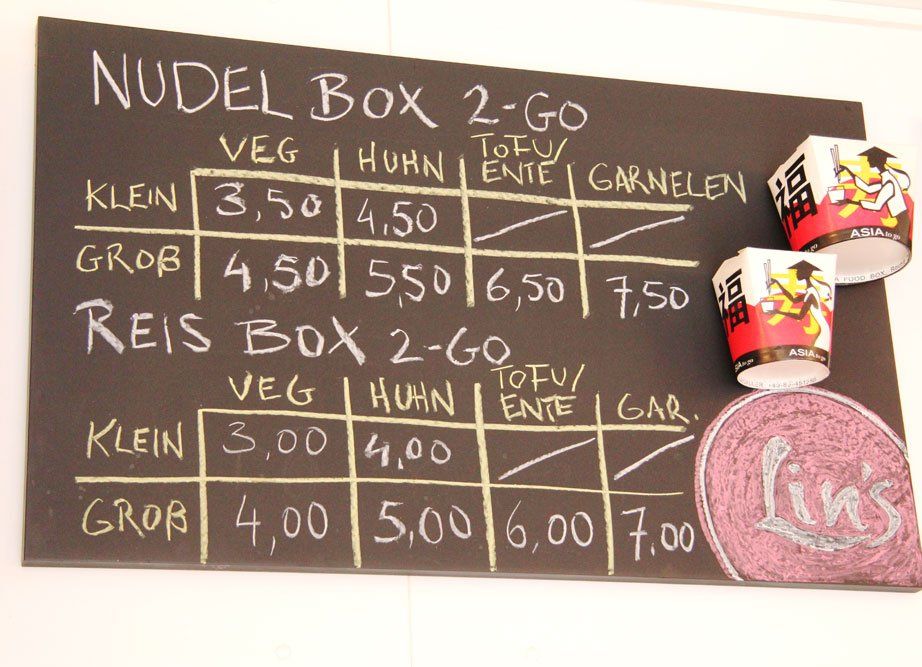 NUDEL BOX 2-GO
VEG HUHN TOFU/ENTE GARNELEN
KLEIN 3,50 4,50 / /
GROß 4,50 5,50 6,50 7,50
REIS BOX 2-GO
VEG HUHN TOFU/ENTE GAR.
KLEIN 3,00 4,00 / /
GROß 4,00 5,00 6,00 7.00
福
ASIA to go
福
ASIA to go
Lin's